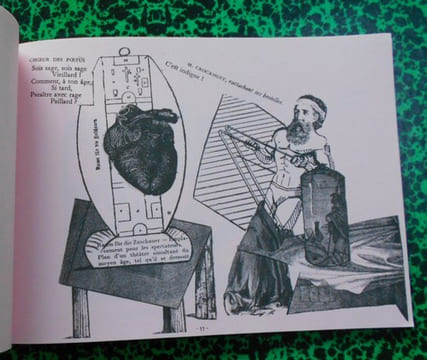 CHŒUR DES FŒTUS
Sois sage, sois sage
Vieillard !
Comment, à ton âge,
Si tard,
Paraître avec rage
Paillard ?
M. CROCKNUFF, rattachant ses bretelles.
C'est indigne !
Raum für die Zuschauer
Raum für die Zuschauer — Emplacement
cement pour les spectateurs.
Plan d'un théâtre simultané du
moyen âge, tel qu'il se dressait
- 11 -